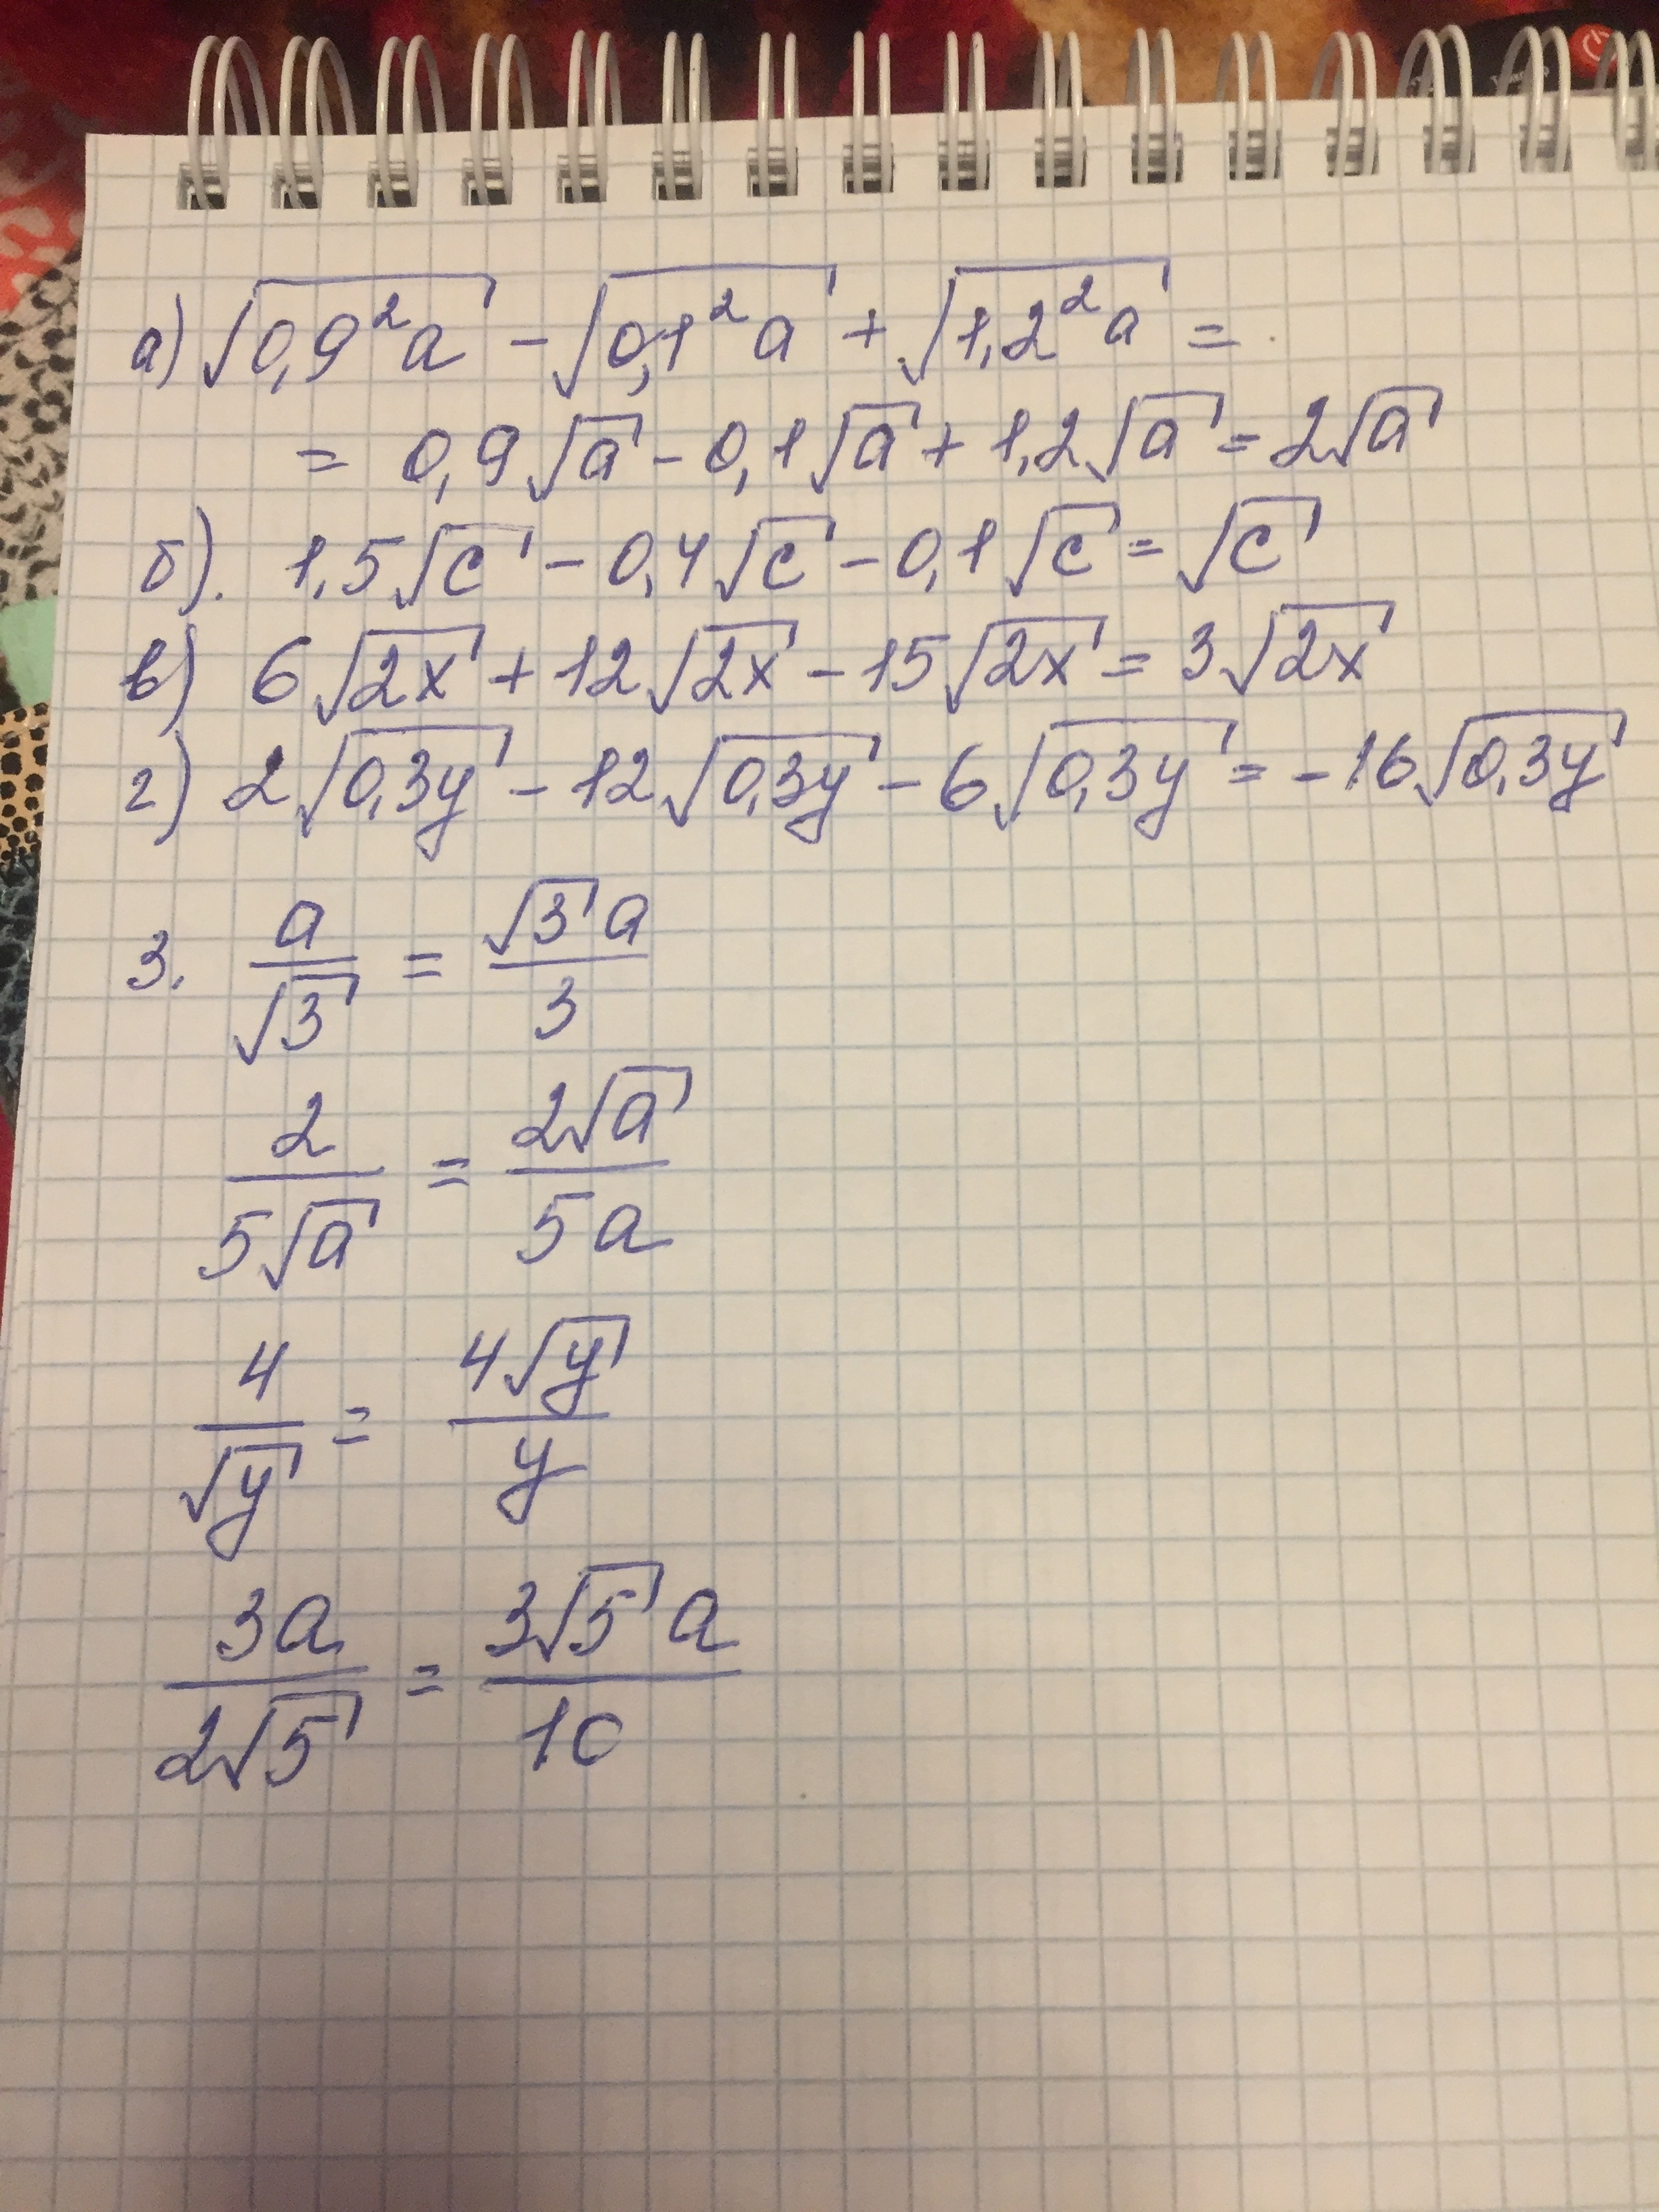 а) √(0,9²a) - √(0,1²a) + √(1,2²a) =
= 0,9√a - 0,1√a + 1,2√a = 2√a
б). 1,5√c - 0,4√c - 0,1√c = √c
в) 6√(2x) + 12√(2x) - 15√(2x) = 3√(2x)
г) 2√(0,3y) - 12√(0,3y) - 6√(0,3y) = -16√(0,3y)
3. a/√3 = √3 a/3
2/(5√a) = 2√a/(5a)
4/√y = 4√y/y
3a/(2√5) = 3√5 a/10